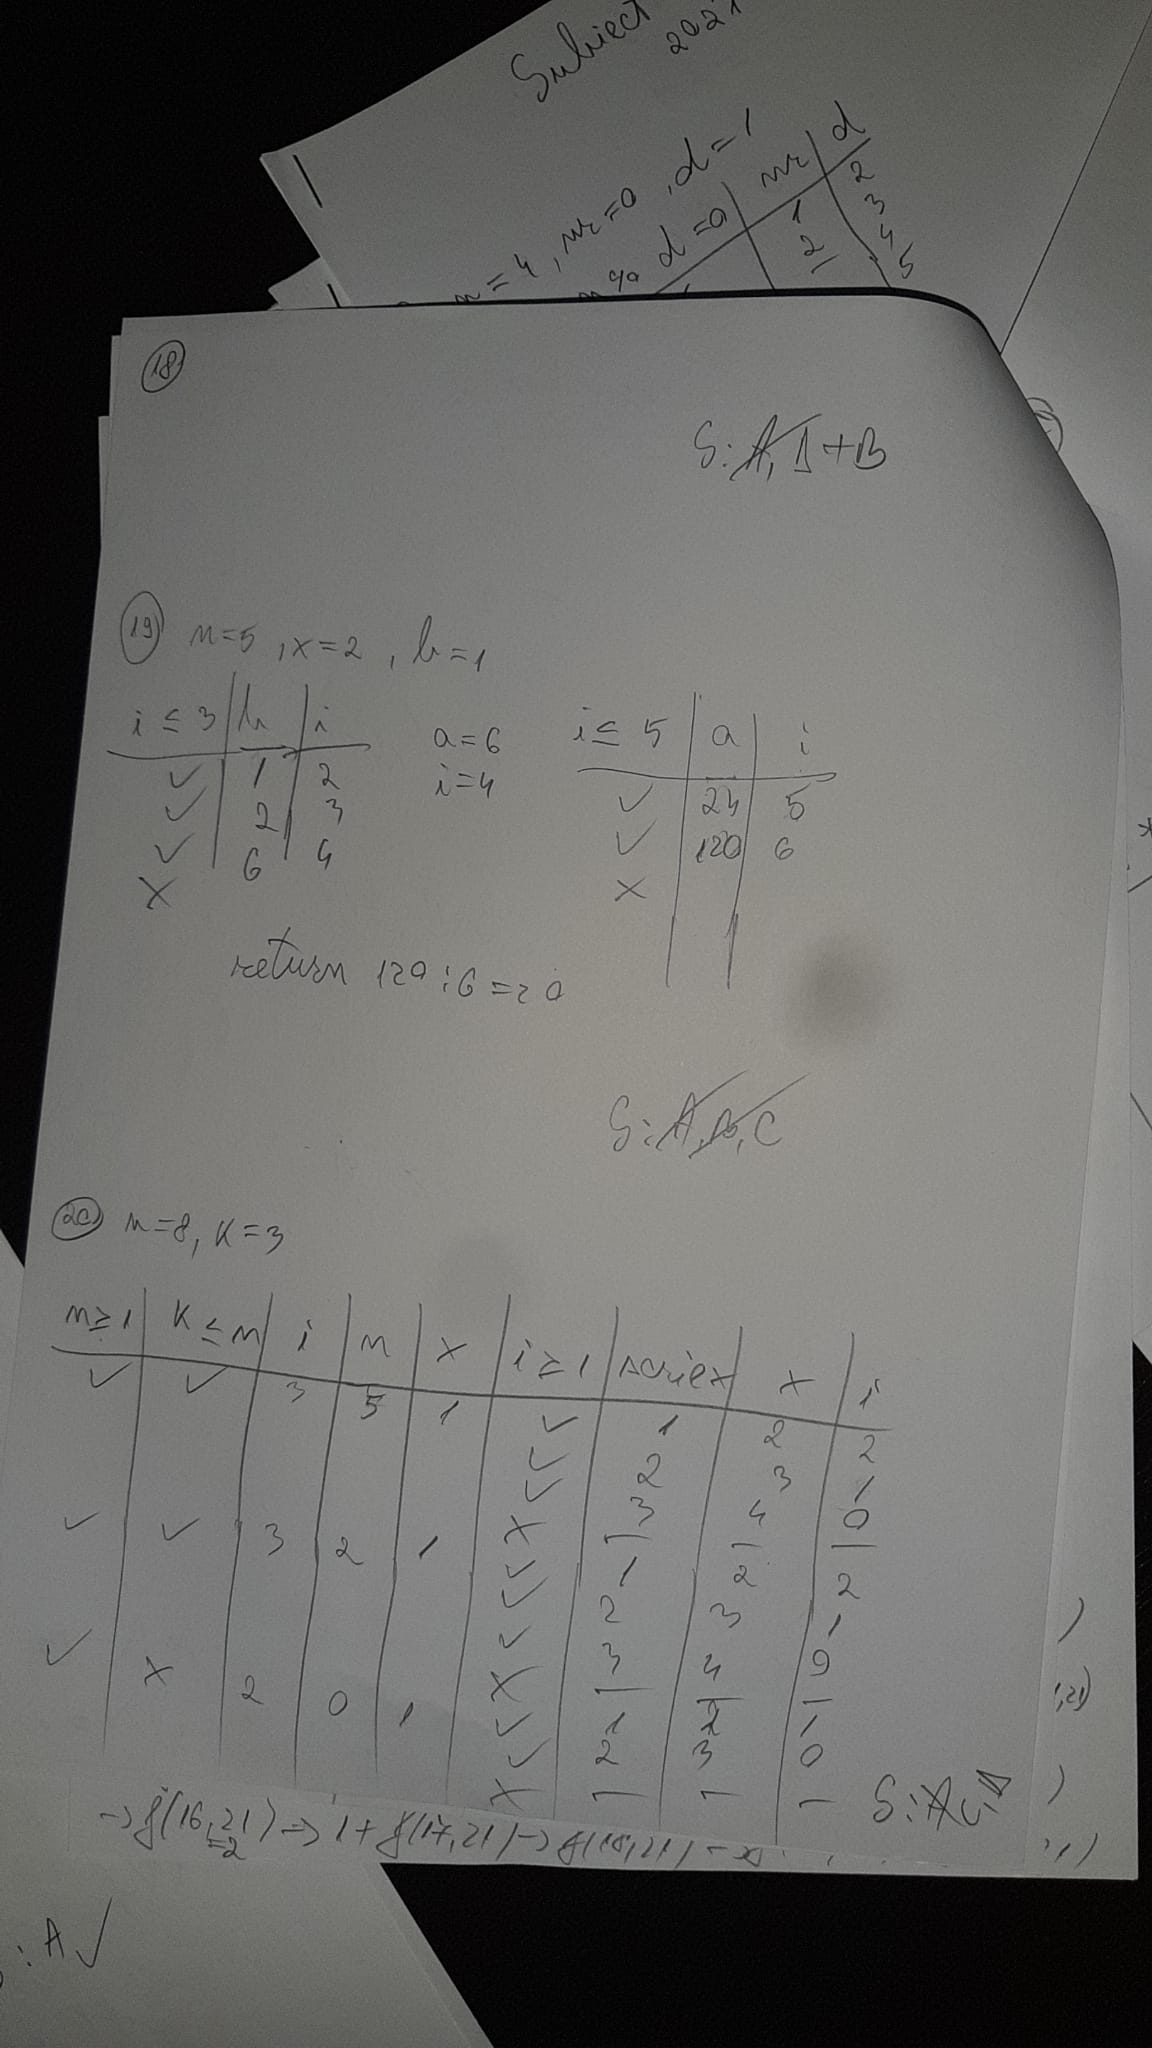 Subiect
2021
n=4, nr=0, d=1
d=0 | nr | d
1 2
2 3
4
5
18
S: A, D+B
19 n=5, x=2, b=1
i ≤ 3 | b | i
✓ 1 2
✓ 2 3
✓ 6 4
X
a=6
i=4
i ≤ 5 | a | i
✓ 24 5
✓ 120 6
X
return 120:6=20
S: A, B, C
20 n=8, K=3
n≥1 | K≤n | i | n | x | i≥1 | scrie x | x | i
✓ ✓ 3 5 1 ✓ 1 2 2
✓ 2 3 1
✓ 3 4 0
X — — —
✓ ✓ 3 2 1 ✓ 1 2 2
✓ 2 3 1
✓ 3 4 0
X — — —
✓ X 2 0 1 ✓ 1 2 1
✓ 2 3 0
X — — —
,21)
→ f(16,21) → 1+f(17,21) → f(18,21)
=2
: A ✓